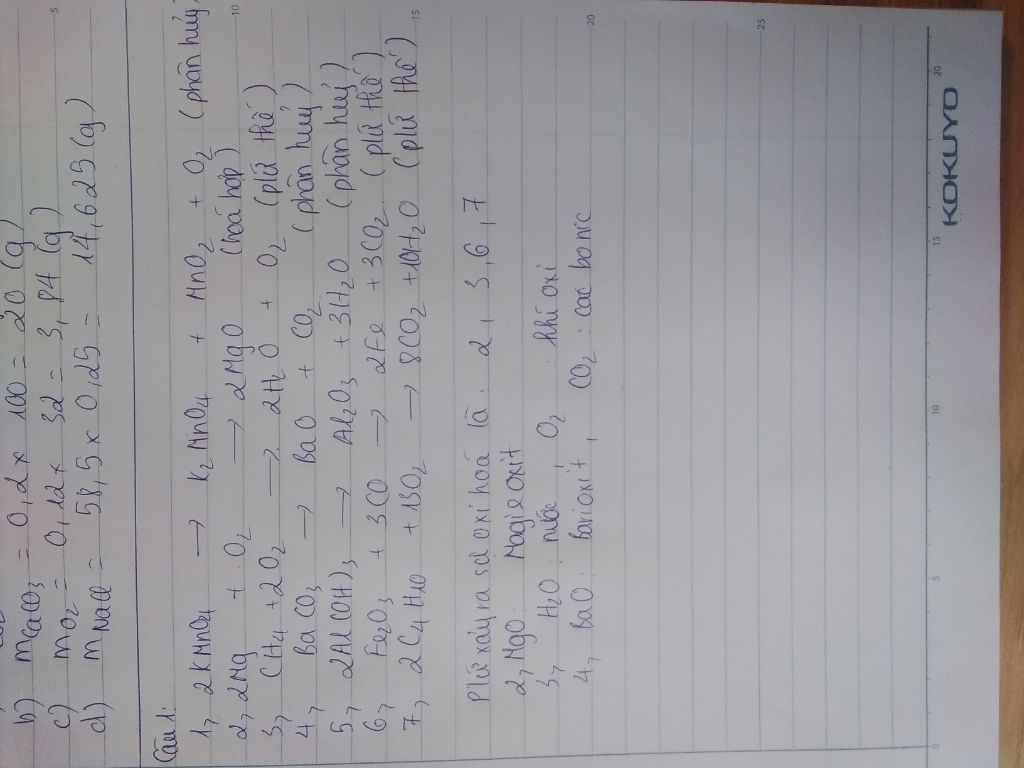 b) mCaCO3 = 0,2 x 100 = 20 (g)
c) mO2 = 0,12 x 32 = 3,84 (g)
d) mNaCl = 58,5 x 0,25 = 14,625 (g)
Câu 1:
1, 2KMnO4 → K2MnO4 + MnO2 + O2 (phân huỷ)
2, 2Mg + O2 → 2MgO (hoá hợp)
3, CH4 + 2O2 → 2H2O + O2 (pư thế)
4, BaCO3 → BaO + CO2 (phân huỷ)
5, 2Al(OH)3 → Al2O3 + 3H2O (phân huỷ)
6, Fe2O3 + 3CO → 2Fe + 3CO2 (pư thế)
7, 2C4H10 + 13O2 → 8CO2 + 10H2O (pư thế)
Pư xảy ra sự oxi hoá là: 2, 3, 6, 7
2, MgO: Magie oxit
3, H2O: nước, O2: khí oxi
4, BaO: bari oxit, CO2: cac bonic
5
10
15
20
25
0
5
10
15
20
KOKUYO